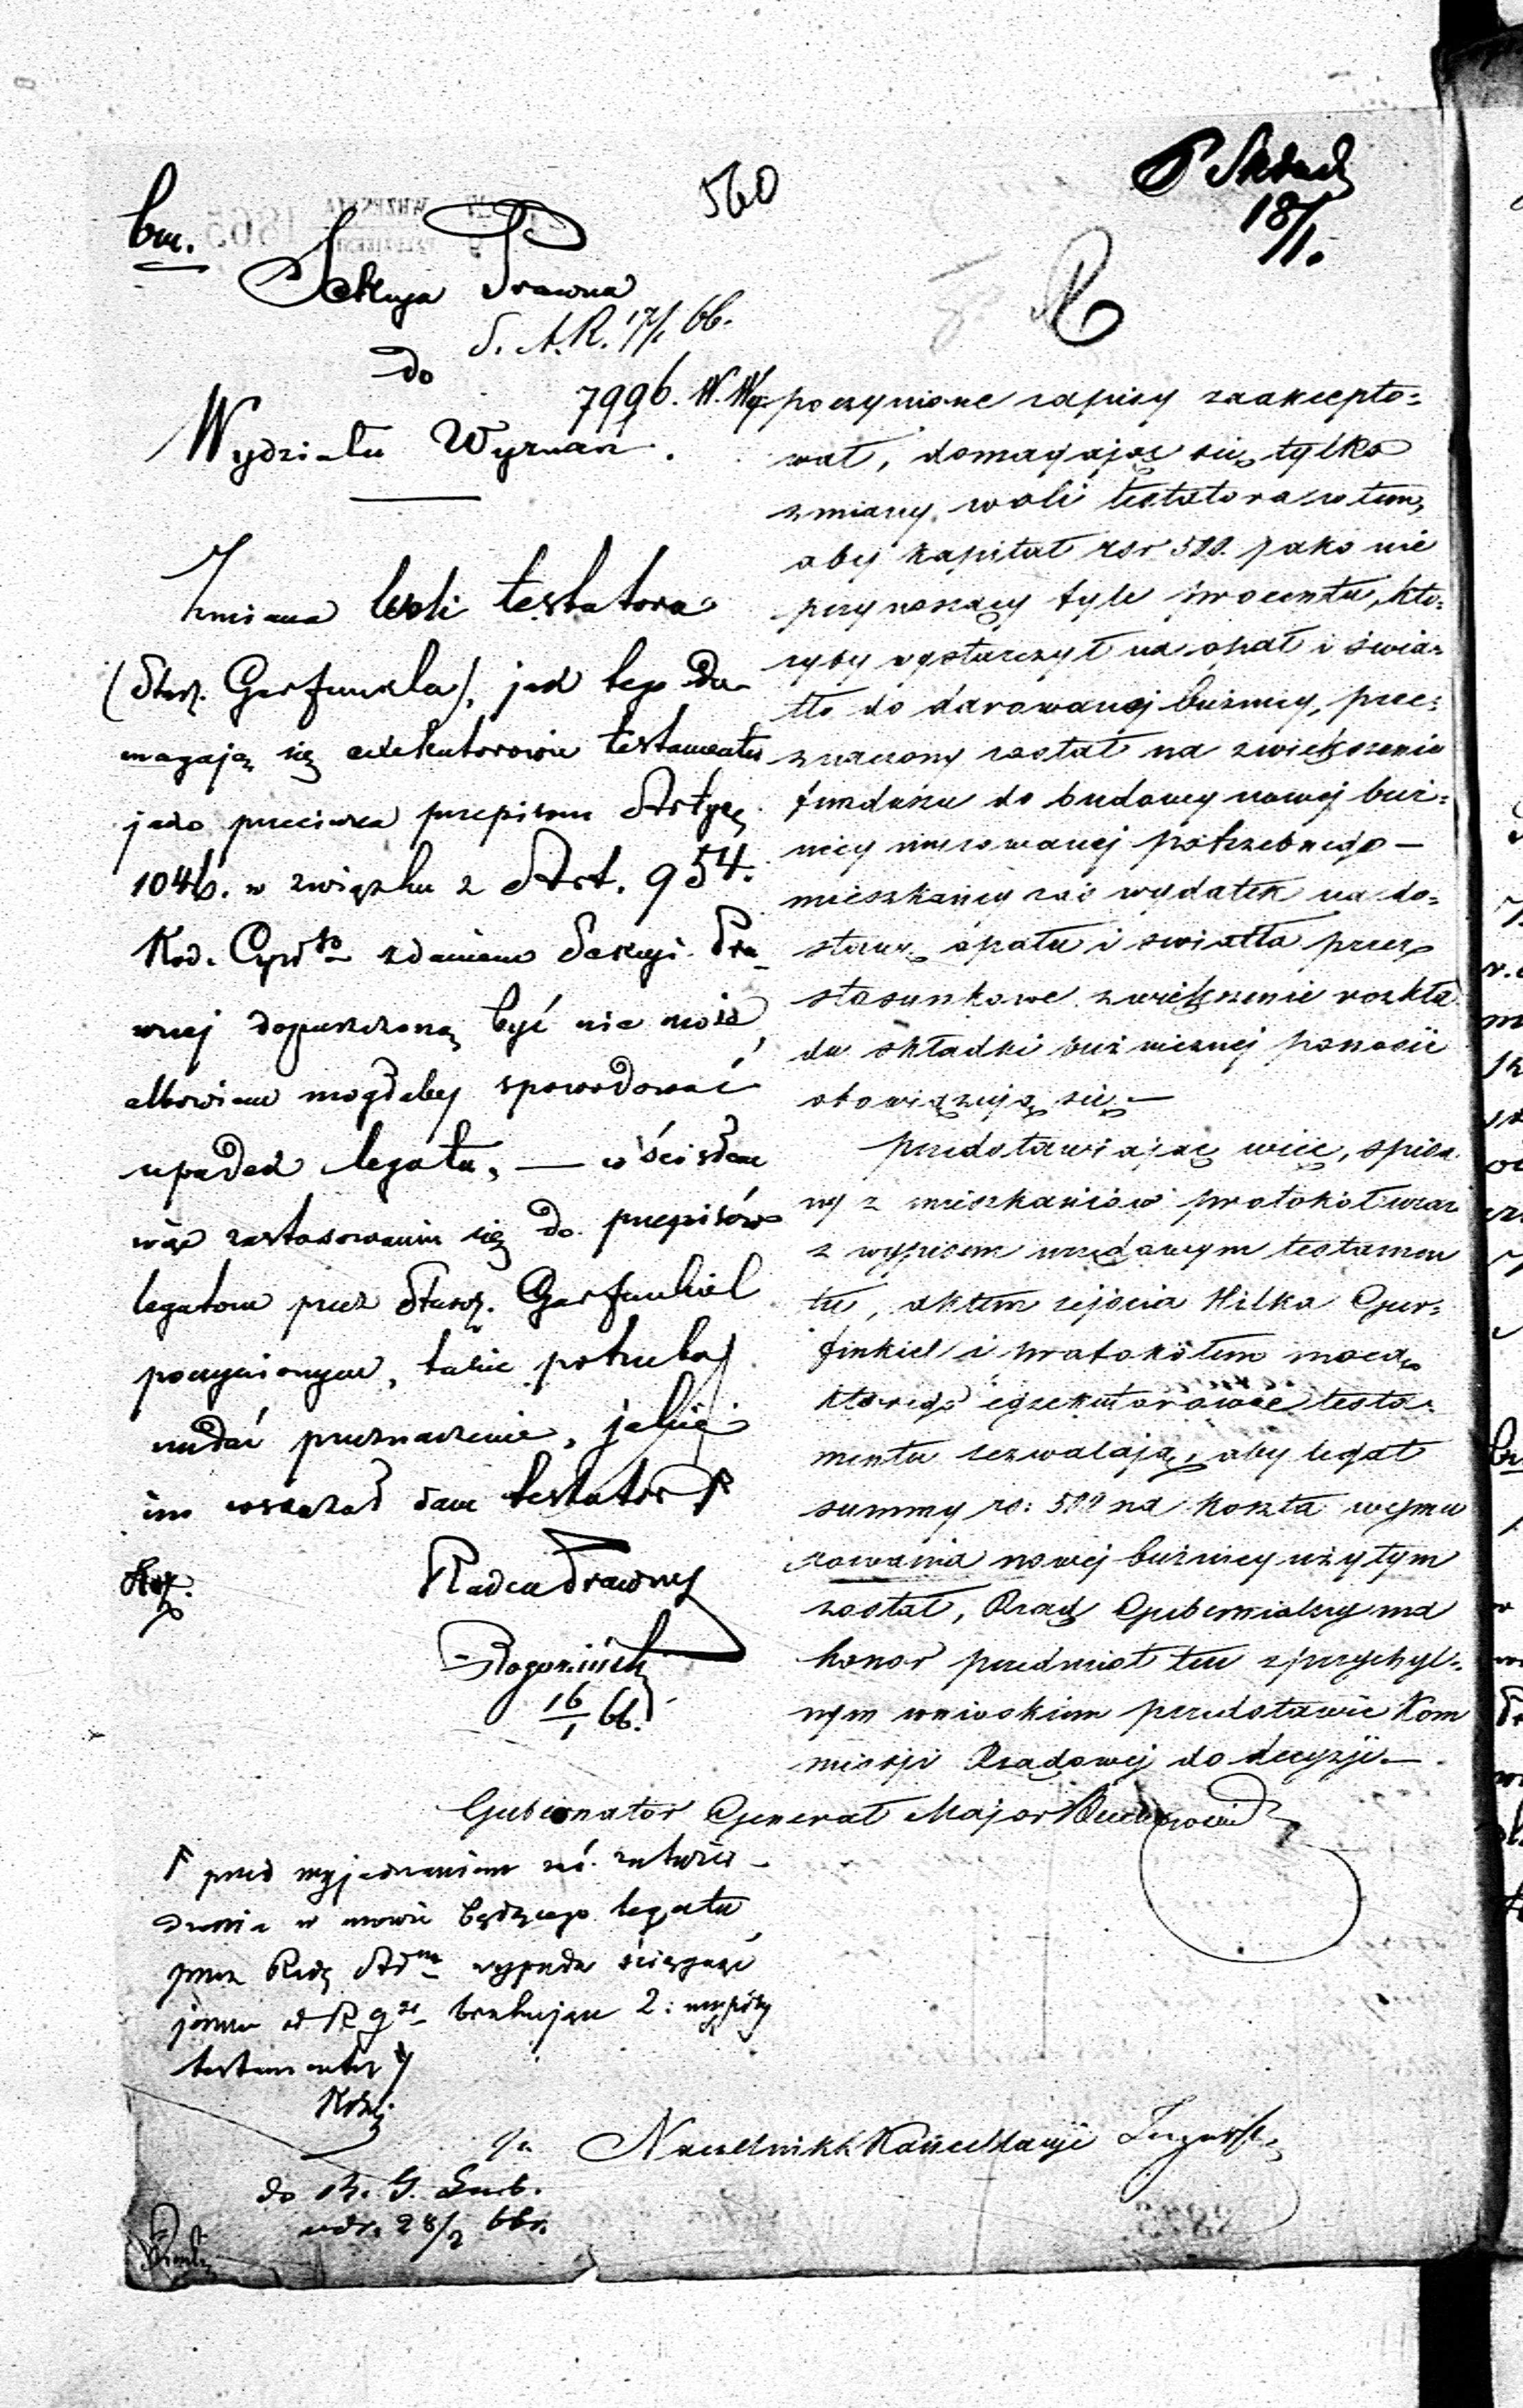 560
bm.
18/1.
Sekcya Prawna
S. A. R. 17/1 66.
do
7996. W. Wyz.
Wydziału Wyznań.
Zmiana woli testatora
(Staroz. Garfunkla), jak tego do-
magają się exekutorowie testamentu
jako przeciwna przepisom Artyk.
1046. w związku z Art. 954.
Kod. Cyw. zdaniem Sekcyi Pra-
wnej dopuszczoną być nie może,
albowiem mogłaby spowodować
upadek legatu, — w ścisłem
więc zastosowaniu się do przepisów
legatom przez Staroz. Garfunkiel
poczynionym, takie potrzeba
nadać przeznaczenie, jakie
im wskazał sam testator
Radca Prawny
16/1 66.
przed wyjednaniem zaś zatwier-
dzenia w mowie będącego legatu
przez Radę Adm. wypada ściągnąć
jeszcze od R. G. brakujące 2: wypisy
testamentu
do R. G. Lub.
28/2 66 r.
poczynione zapisy zaakcepto-
wał, domagając się tylko
zmiany woli testatora w tem,
aby kapitał rsr 500. jako nie
przynoszący tyle procentu, któ-
ryby wystarczył na opał i świa-
tło do darowanej bużnicy, prze-
znaczony został na zwiększenie
funduszu do budowy nowej buż-
nicy murowanej potrzebnego —
mieszkańcy zaś wydatek na do-
stawę opału i światła przez
stosunkowe zwiększenie rozkła
du składki bużnicznej ponosić
obowiązują się. —
Przedstawiając więc, spisa-
ny z mieszkańców protokół wraz
z wypisem urzędowym testamen
tu, aktem zejścia Hilka Gur-
finkiel i protokółem mocą
którego egzekutorowie testa-
mentu zezwalają, aby legat
summy rs: 500 na koszta wymu
rowania nowej bużnicy użytym
został, Rząd Gubernialny ma
honor przedmiot ten z przychyl-
nym wnioskiem przedstawić Kom
missji Rządowej do decyzji. —
Gubernator Generał Major
za Naczelnik Kancellaryi